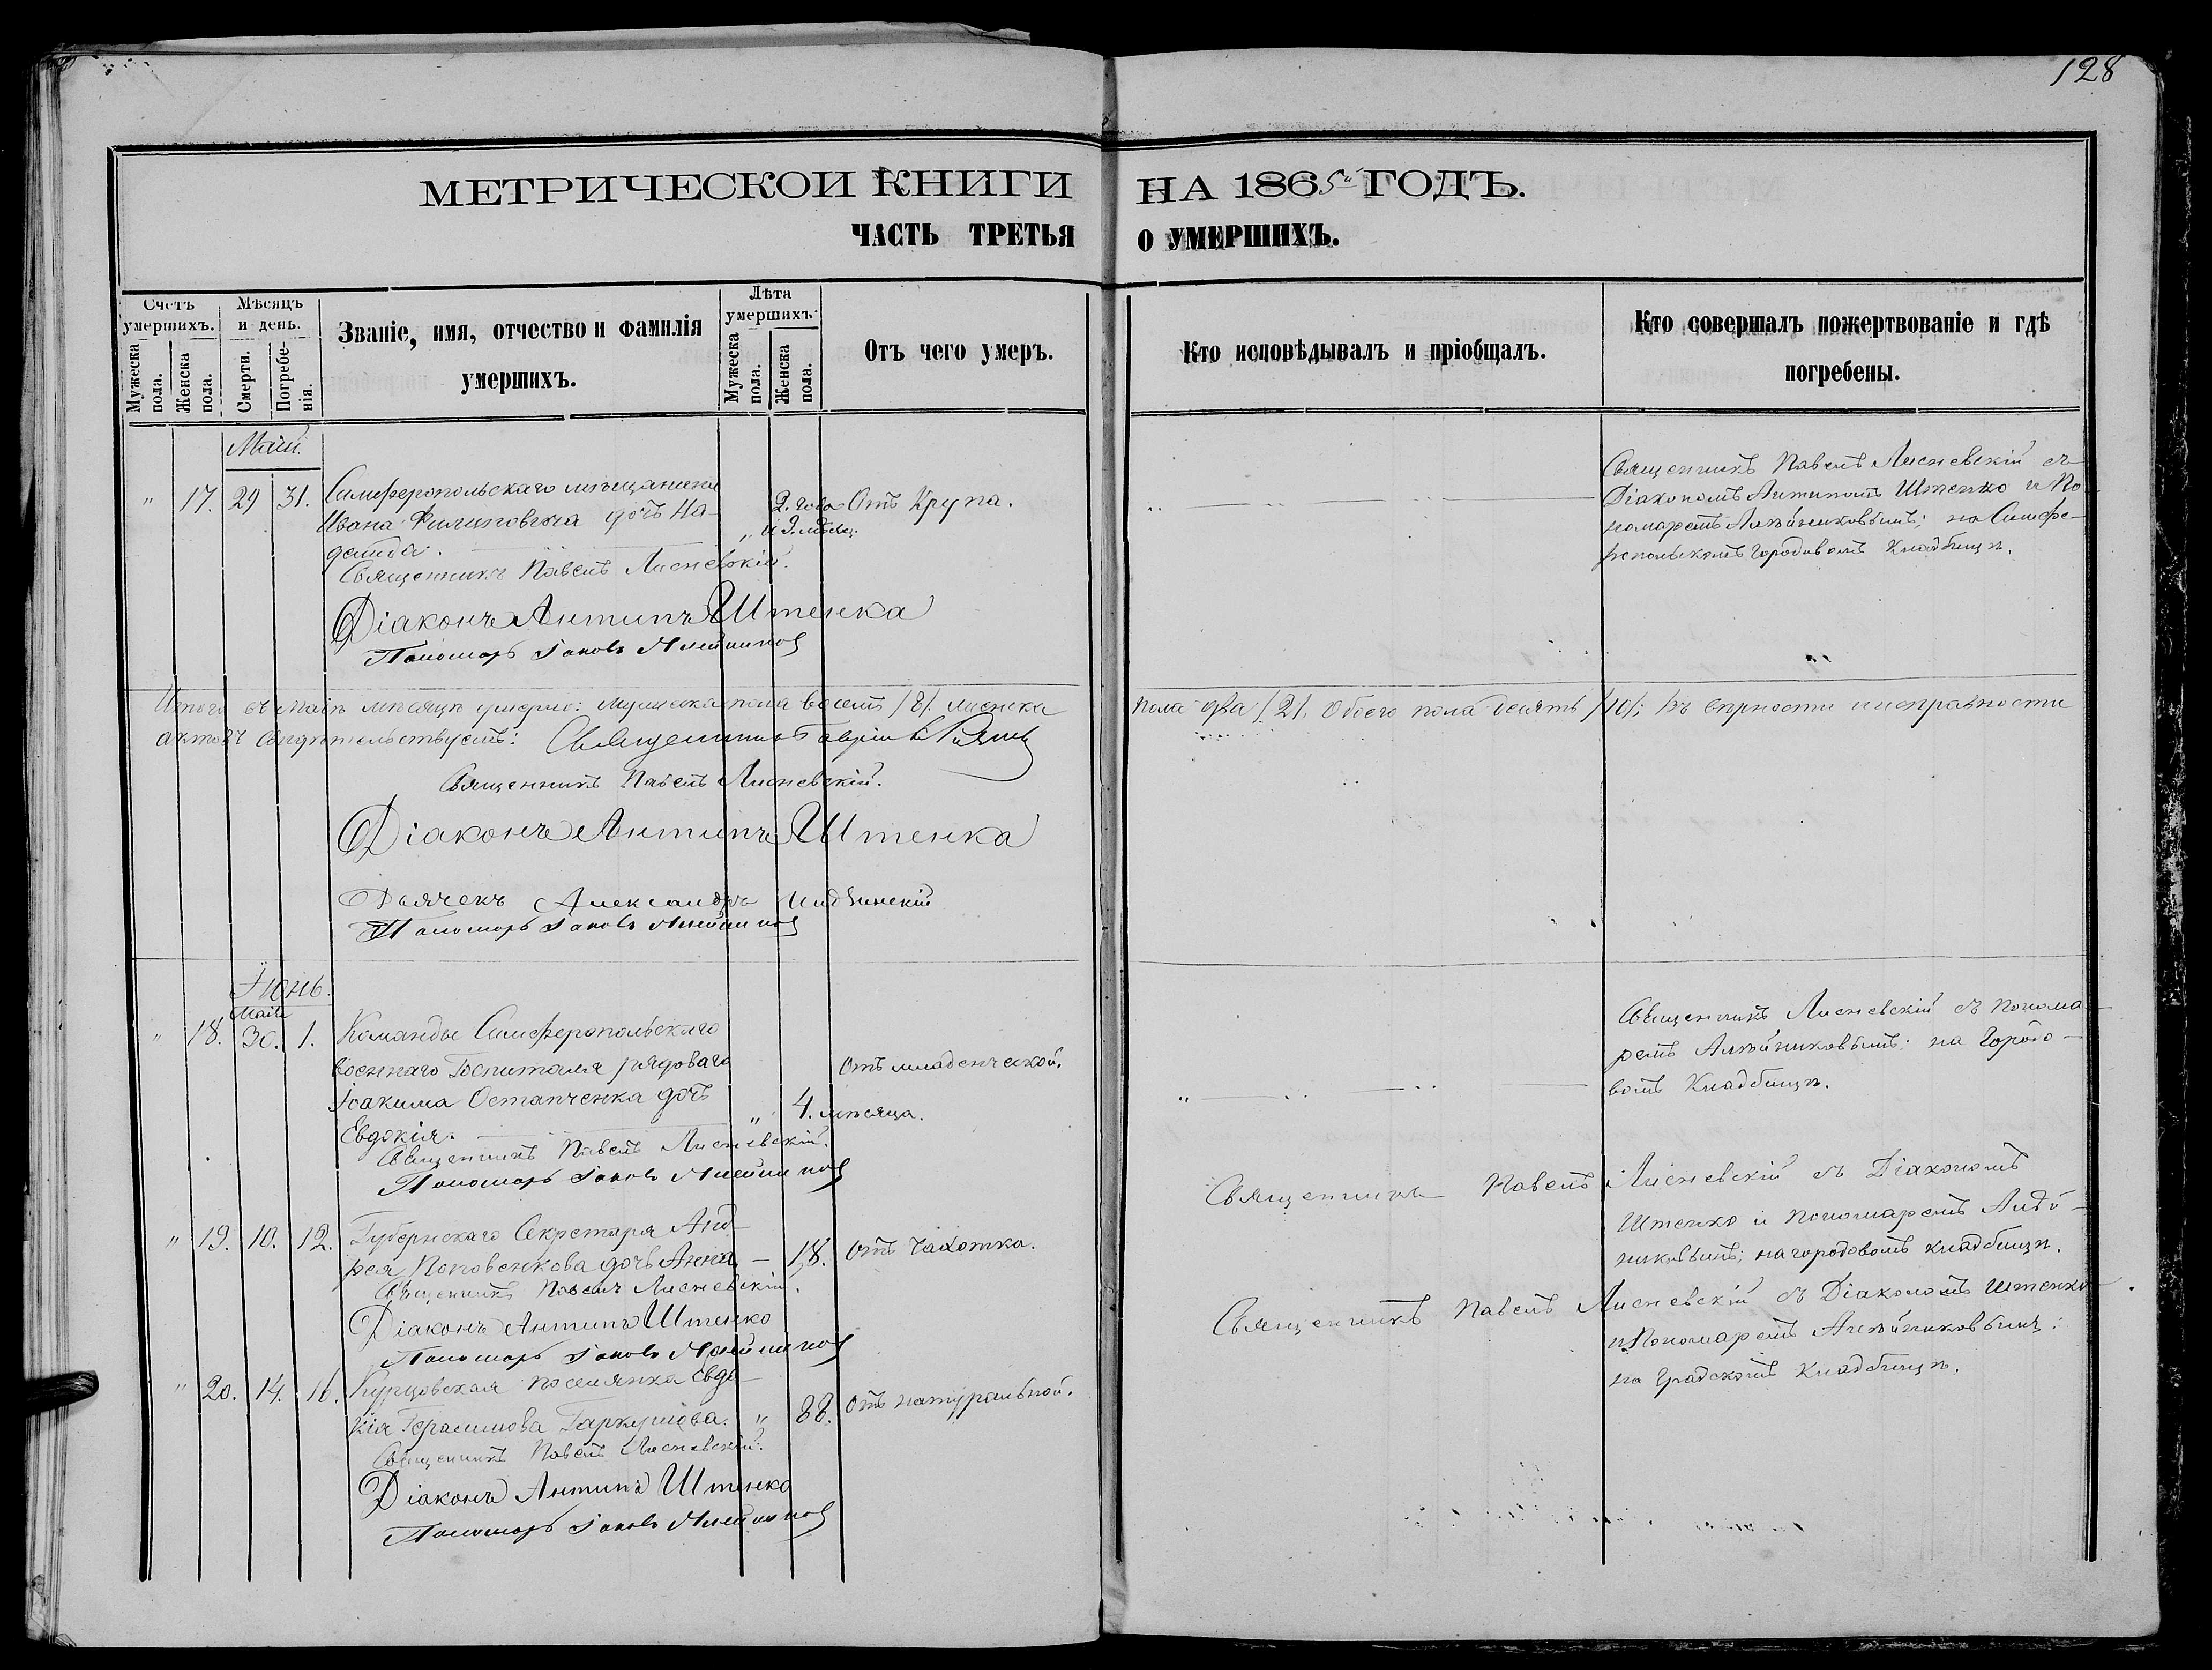 128
МЕТРИЧЕСКОЙ КНИГИ НА 1865й ГОДЪ.
ЧАСТЬ ТРЕТЬЯ О УМЕРШИХЪ.
Счетъ умершихъ.
Мужеска пола.
Женска пола.
Мѣсяцъ и день.
Смерти.
Погребенія.
Званіе, имя, отчество и фамилія
умершихъ.
Лѣта умершихъ.
Мужеска пола.
Женска пола.
Отъ чего умеръ.
Кто исповѣдывалъ и пріобщалъ.
Кто совершалъ пожертвованіе и гдѣ
погребены.
Маій.
" 17. 29 31. Симферопольскаго мѣщанина
Ивана Филиповича дочь На-
дежда.
" 2. года
и 3. мѣсяц.
Отъ Крупа.
Священникъ Павелъ Лисневскій съ
Діакономъ Антипомъ Штенко и По
номаремъ Алѣйниковымъ; на Симфе-
ропольскомъ Городовомъ Кладбищѣ.
Священникъ Павелъ Лисневскій.
Діаконъ Антипъ Штенка
Пономарь Іаковъ
Итого въ Маіѣ мѣсяцѣ умерло: мужеска пола восемь /8/. женска
пола два /2/. Обоего пола десять /10/; въ вѣрности и исправности
актовъ свидѣтельствуемъ: Священникъ
Священникъ Павелъ Лисневскій.
Діаконъ Антипъ Штенка
Дьячекъ Александръ
Пономарь Іаковъ
Іюнь.
Маія
" 18. 30. 1. Команды Симферопольскаго
военнаго Госпиталя рядоваго
Іоакима Остапченка дочь
Евдокія.
" 4. мѣсяца.
Отъ младенческой.
Священникъ Лисневскій съ Понома-
ремъ Алѣйниковымъ; на Городо-
вомъ Кладбищѣ.
Священникъ Павелъ Лисневскій.
Пономарь Іаковъ
" 19. 10. 12. Губернскаго Секретаря Анд-
рея Поповенкова дочь Анна — 18. Отъ чахотки.
Священникъ Павелъ Лисневскій съ Діакономъ
Штенко и Пономаремъ Алѣй-
никовымъ; на городовомъ кладбищѣ.
Священникъ Павелъ Лисневскій.
Діаконъ Антипъ Штенко
Пономарь Іаковъ
" 20. 14. 16. Курцовская поселянка Евдо-
кія Герасимова " 88. Отъ натуральной.
Священникъ Павелъ Лисневскій съ Діакономъ Штенко
и Пономаремъ Алѣйниковымъ;
на Градскомъ Кладбищѣ.
Священникъ Павелъ Лисневскій.
Діаконъ Антипъ Штенко
Пономарь Іаковъ